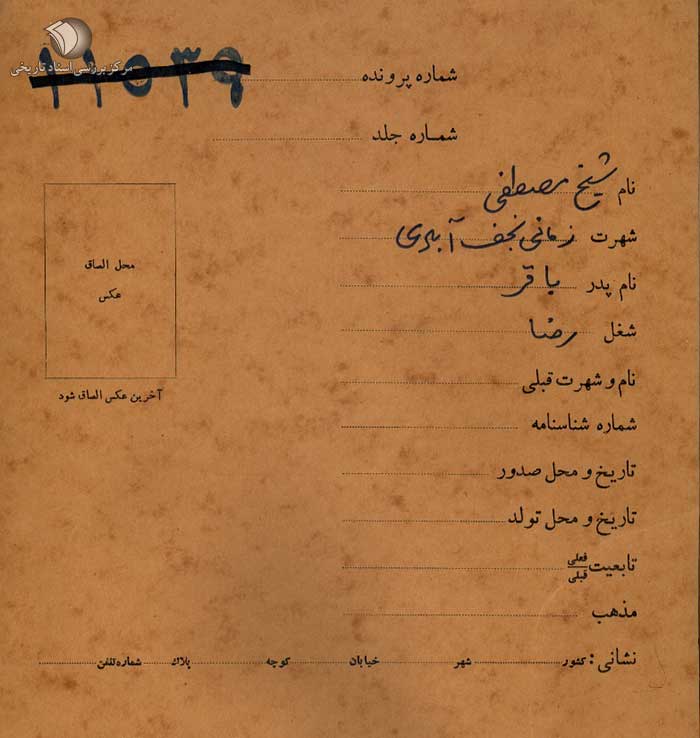 مرکز بررسی اسناد تاریخی
شماره پرونده ۱۱۵۳۹
شماره جلد
نام شیخ مصطفی
شهرت زمانی نجف آبادی
نام پدر باقر
محل الصاق
عکس
شغل رضا
نام و شهرت قبلی
آخرین عکس الصاق شود
شماره شناسنامه
تاریخ و محل صدور
تاریخ و محل تولد
تابعیت فعلی
قبلی
مذهب
نشانی: کشور شهر خیابان کوچه پلاک شماره تلفن